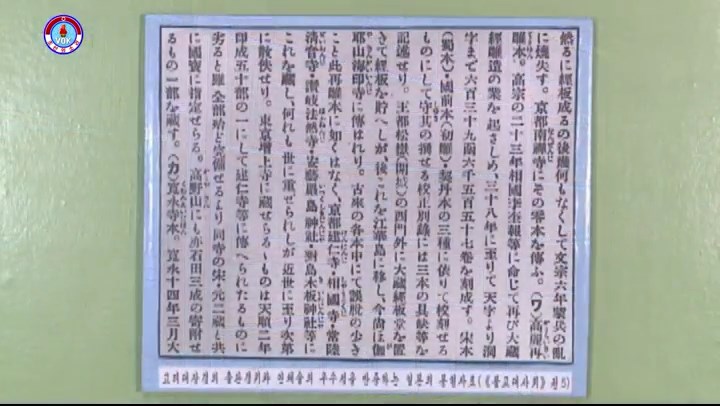 然るに經板成るの後幾何もなくして文宗六年變兵の亂
に燒失す。京都南禪寺にその零本を傳ふ。(ワ)高麗再
雕本。高宗の二十三年相國李奎報等に命じて再び大藏
經雕造の業を起さしめ、三十八年に至りて天字より洞
字まで六百三十九函六千五百五十七卷を刻成す。宋本
(蜀本)・國前本(初雕)・契丹本の三種に依りて校刻せる
ものにして守其の撰せる校正別錄には三本の具缺等を
記述せり。王都松嶽(開城)の西門外に大藏經板堂を置
きて經板を貯へしが、後これを江華島に移し、今尙ほ伽
耶山海印寺に傳はれり。古來の各本中にて誤脫の少き
こと此再雕本に如くはなく、京都建仁寺・相國寺・常陸
淸音寺・讚岐法然寺・安藝嚴島神社・對島木板神社等に
これを藏し、何れも世に重ぜられしが近世に至り次第
に散佚せり。東京增上寺に藏せらるゝものは天順二年
印成五十部の一にして建仁寺等に傳へられたるものに
劣ると雖全部殆ど完備せるより同寺の宋・元二藏と共
に國寶に指定せらる。高野山にも亦石田三成の寄附せ
るもの一部を藏す。(カ)寬永寺本。寬永十四年三月天
고려대장경의 출판경위와 인쇄술의 우수성을 반증하는 일본의 문헌사료(《불교대사회》 전5)
VOK